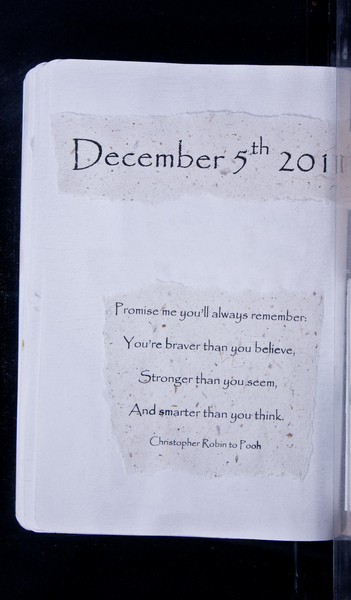 December 5th 2011
Promise me you'll always remember:
You're braver than you believe,
Stronger than you seem,
And smarter than you think.
Christopher Robin to Pooh